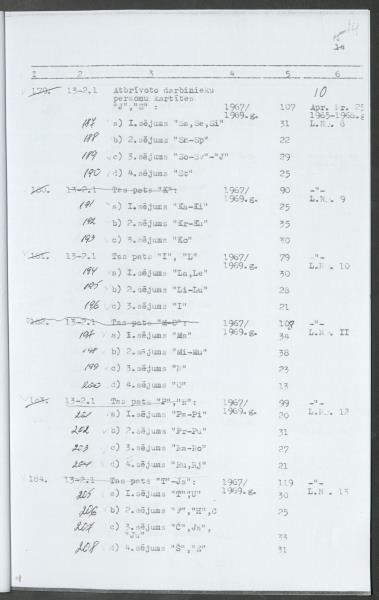 14
1 2 3 4 5 6
179. 13-2.1 Atbrīvoto darbinieku 10
personu kartītes
"J","S": 1967/ 107 Apr. Nr. 25
1969.g. 1965-1966.g
187 a) I.sējums "Sa,Se,Si" 31 L.Nr. 8
188 b) 2.sējums "Sm-Sp" 22
189 c) 3.sējums "So-Sv"-"J" 29
190 d) 4.sējums "St" 25
180. 13-2.1 Tas pats "K": 1967/ 90 -"-
1969.g. L.Nr. 9
191 a) I.sējums "Ka-Ki" 25
192 b) 2.sējums "Kr-Ku" 35
193 c) 3.sējums "Ko" 30
181. 13-2.1 Tas pats "I", "L" 1967/ 79 -"-
1969.g. L.Nr. 10
194 a) I.sējums "La,Le" 30
195 b) 2.sējums "Li-Lu" 28
196 c) 3.sējums "I" 21
182. 13-2.1 Tas pats "M-O": 1967/ 108 -"-
197 a) I.sējums "Ma" 1969.g. 34 L.Nr. II
198 b) 2.sējums "Mi-Mu" 38
199 c) 3.sējums "N" 23
200 d) 4.sējums "O" 13
183. 13-2.1 Tas pats "P","R": 1967/ 99 -"-
201 a) I.sējums "Pa-Pi" 1969.g. 20 L.Nr. 12
202 b) 2.sējums "Pr-Pu" 31
203 c) 3.sējums "Ra-Ro" 27
204 d) 4.sējums "Ru,Rj" 21
184. 13-2.1 Tas pats "T"-Ja": 1967/ 119 -"-
205 a) I.sējums "T","U" 1969.g. 30 L.N . 13
206 b) 2.sējums "F","H",C 25
207 c) 3.sējums "Č",Ja",
"Ju" 33
208 d) 4.sējums "Š","E" 31